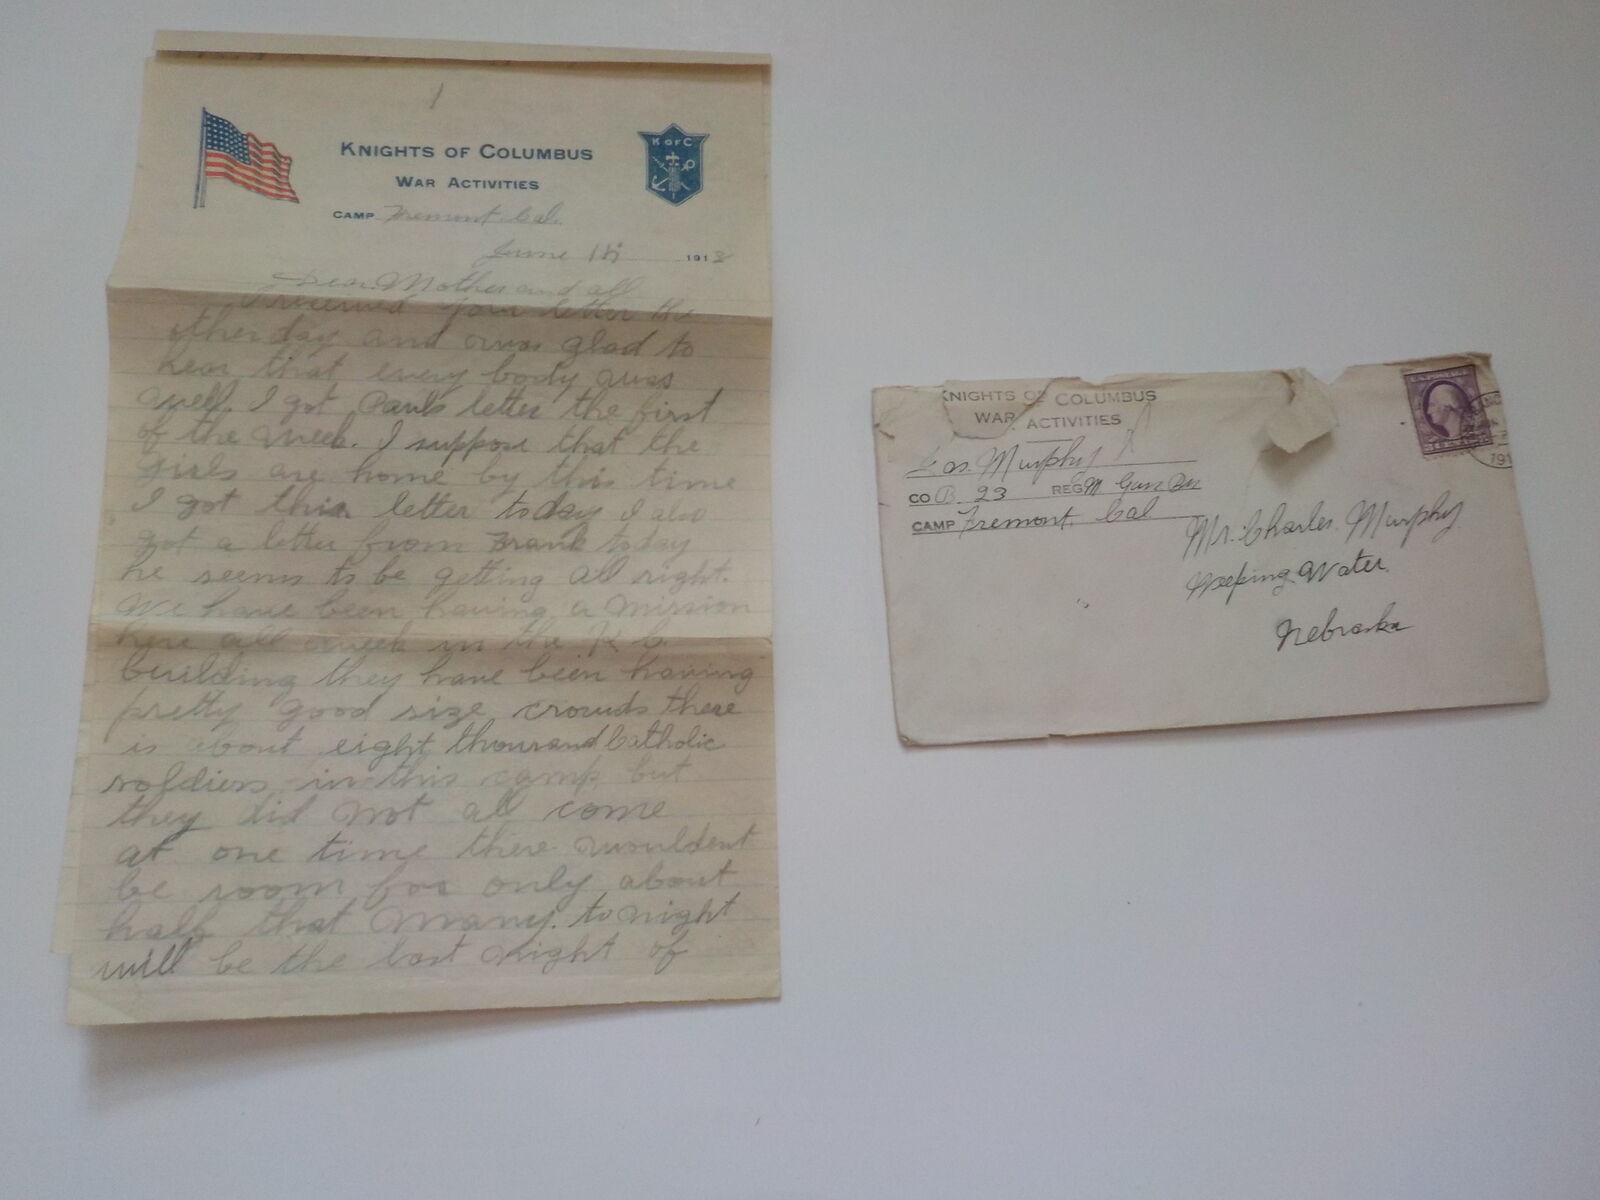 1
KNIGHTS OF COLUMBUS
WAR ACTIVITIES
K OF C
CAMP Fremont. Cal.
June 1918
Dear Mother and all
I received your letter the
other day and was glad to
hear that every body was
well. I got Pauls letter the first
of the week. I suppose that the
girls are home by this time
I got this letter today I also
got a letter from Frank today
he seems to be getting all right.
We have been having a mission
here all week in the K C.
building they have been having
pretty good size crowds there
is about eight thousand Catholic
soldiers in this camp but
they did not all come
at one time there wouldent
be room for only about
half that many. to night
will be the last night of
KNIGHTS OF COLUMBUS
WAR ACTIVITIES
Jas. Murphy
CO B. 23 REG M Gun Bn
CAMP Fremont. Cal
Mr. Charles. Murphy
Weeping Water.
Nebraska
U.S. POSTAGE
191